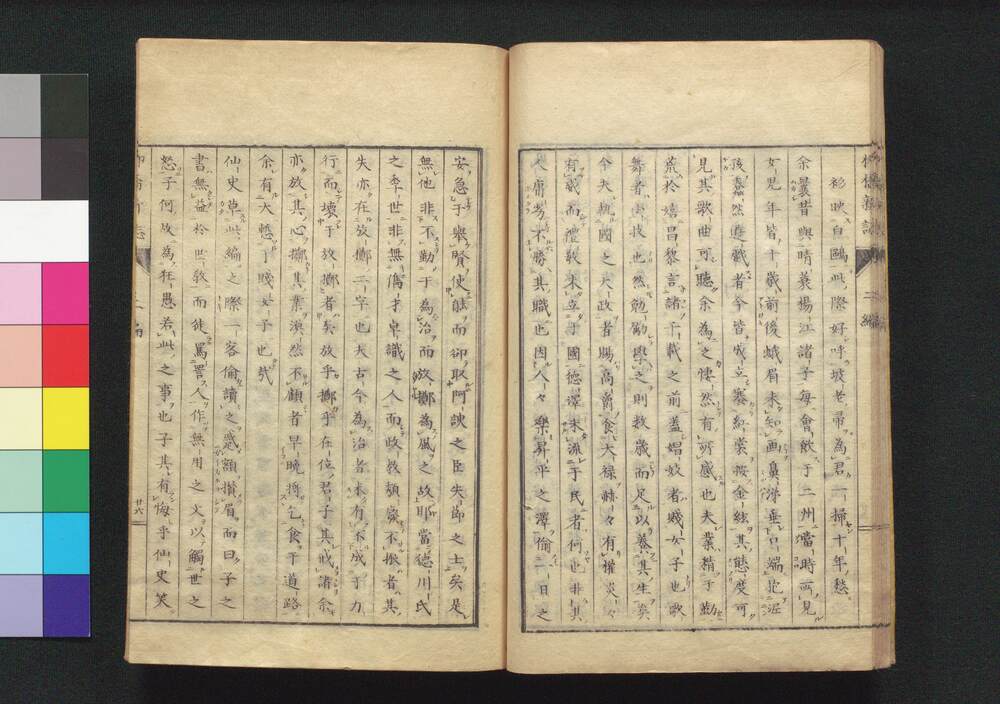 柳橋新誌 二編
初映白鷗此際好呼坡老帚為君一掃十年愁
余曩昔與晴蓑揚江諸子每會飲于二州當時所見
女児年皆十歳前後蛾眉未知画鼻涕垂口端
孩嘉然遊戱者今皆成立紅裳按金絃其態度可
見其歌曲可聽余為之悽然有所感也夫業精于勤
荒於嬉昌黎言諸千載之前蓋娼妓者賤女子也歌
舞者小技也然勉勵學之則数歳而足以養其生矣
今夫執國之大政者賜高爵食大禄赫々有權炎々
有威而禮教未立于國德澤未流于民者何也非其
人庸劣不勝其職也因人々樂昇平之澤偷一日之
安急于舉賢使能而卻取阿諛之臣失節之士矣是
無他非不勤于為治而放擲為風之故耶當德川氏
之季世非無偉才卓識之人而政教頽廢不振者其
失亦在放擲二字也大古今為治者未有不成于力
行而壞于放擲者矣放乎擲乎在位君子其戒諸余
亦放其心擲其業漠然不顧者早晩將乞食于道路
余有大慙丁賤女子也哉
仙史草此編之際一客偷讀之蹙額攅眉而曰子之
書無益於世教而徒罵詈人作無用之文以觸世之
怒子何故為狂愚若此之事也子其有悔乎仙史笑
廿六